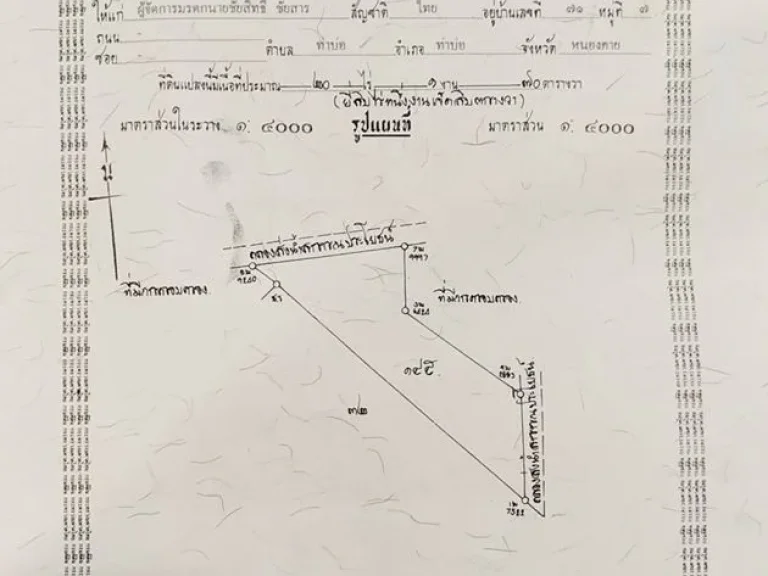 ให้แก่ ผู้จัดการมรดกนายชัยสิทธิ์ ชัยสาร สัญชาติ ไทย อยู่บ้านเลขที่ ๗๑ หมู่ที่ ๗
ถนน
ซอย - ตำบล ท่าบ่อ อำเภอ ท่าบ่อ จังหวัด หนองคาย
ที่ดินแปลงนี้มีเนื้อที่ประมาณ ๒๐ ไร่ ๑ งาน ๗๐ ตารางวา
(ยี่สิบไร่หนึ่งงานเจ็ดสิบตารางวา)
มาตราส่วนในระวาง ๑: ๔๐๐๐ รูปแผนที่ มาตราส่วน ๑: ๔๐๐๐
คลองส่งน้ำสาธารณประโยชน์
ที่มีการครอบครอง
ที่มีการครอบครอง
๑๔๕
๓๒
คลองส่งน้ำสาธารณประโยชน์